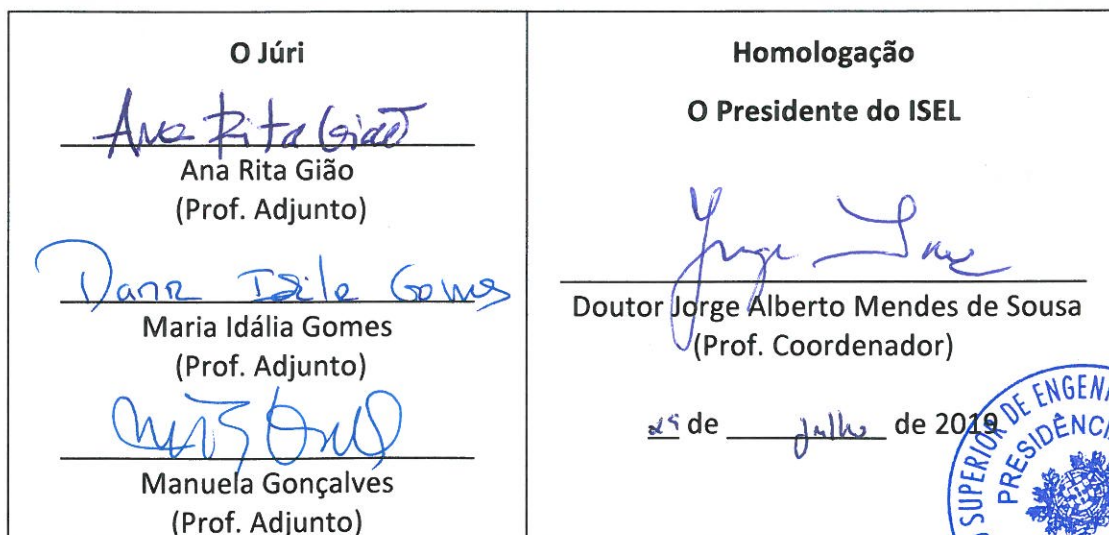 O Júri
Ana Rita Gião
Ana Rita Gião
(Prof. Adjunto)
Idália Gomes
Maria Idália Gomes
(Prof. Adjunto)
Manuela Gonçalves
(Prof. Adjunto)
Homologação
O Presidente do ISEL
Jorge
Doutor Jorge Alberto Mendes de Sousa
(Prof. Coordenador)
de julho de 2019
SUPERIOR DE ENGEN
PRESIDÊNCIA